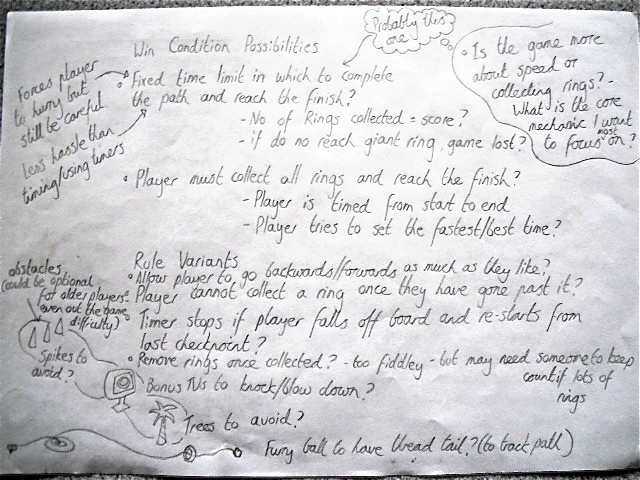 Probably this
one
Win Condition Possibilities
Forces player
to hurry but
still be careful.
Less hassle than
timing/using timers
• Fixed time limit in which to complete
the path and reach the finish?
- No of Rings collected = score?
- if do no reach giant ring, game lost?
• Is the game more
about speed or
collecting rings? -
What is the core
mechanic I want
to focus most on?
• Player must collect all rings and reach the finish?
- Player is timed from start to end
- Player tries to set the fastest/best time?
Rule Variants
• Allow player to go backwards/forwards as much as they like?
• Player cannot collect a ring once they have gone past it?
• Timer stops if player falls off board and re-starts from
last checkpoint?
• Remove rings once collected? - too fiddley - but may need someone to keep
count if lots of
rings
obstacles
(could be optional
for older players
even out the game
difficulty)
Spikes to
avoid?
Bonus TVs to knock/blow down?
Trees to avoid?
Furry ball to have thread tail? (to track path)